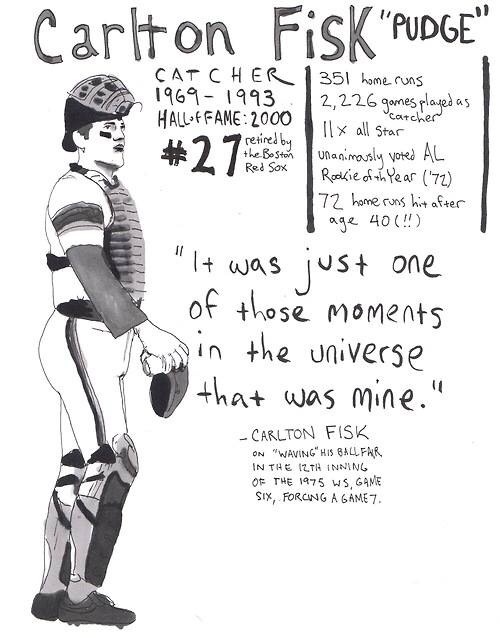 Carlton Fisk "PUDGE"
CATCHER
1969-1993
HALL of FAME: 2000
#27 retired by
the Boston
Red Sox
351 home runs
2,226 games played as
catcher
11x all star
unanimously voted AL
Rookie of th Year ('72)
72 home runs hit after
age 40 (!!)
"It was just one
of those moments
in the universe
that was mine."
- CARLTON FISK
ON "WAVING" HIS BALL FAIR
IN THE 12TH INNING
OF THE 1975 WS, GAME
SIX, FORCING A GAME 7.